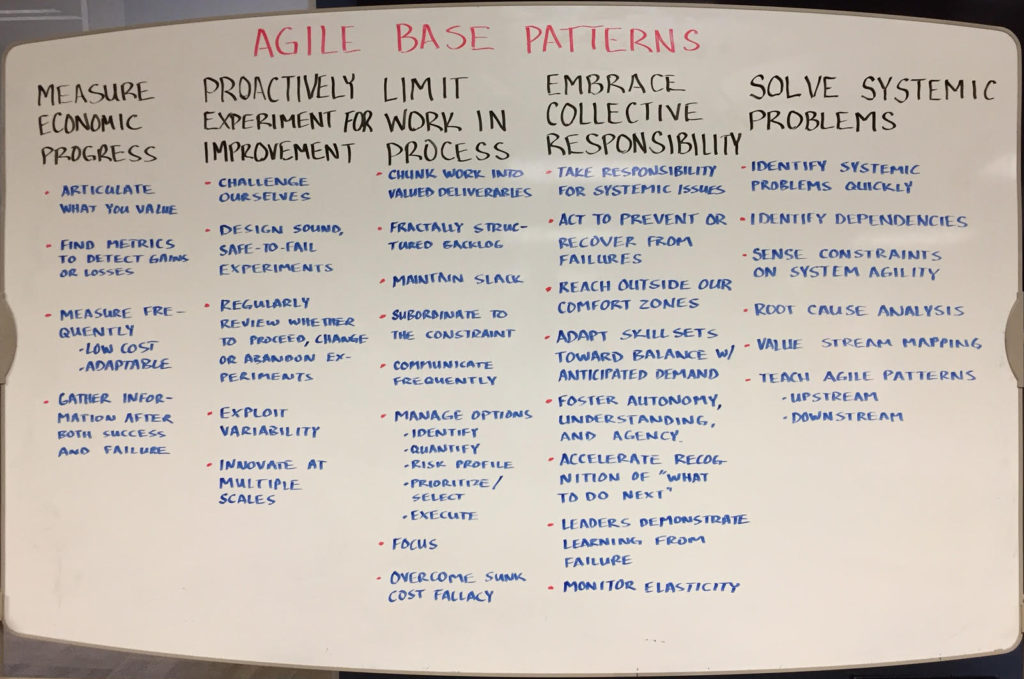 AGILE BASE PATTERNS
MEASURE
ECONOMIC
PROGRESS
• ARTICULATE
WHAT YOU VALUE
• FIND METRICS
TO DETECT GAINS
OR LOSSES
• MEASURE FRE-
QUENTLY
•LOW COST
•ADAPTABLE
• GATHER INFOR-
MATION AFTER
BOTH SUCCESS
AND FAILURE
PROACTIVELY
EXPERIMENT FOR
IMPROVEMENT
• CHALLENGE
OURSELVES
• DESIGN SOUND,
SAFE-TO-FAIL
EXPERIMENTS
• REGULARLY
REVIEW WHETHER
TO PROCEED, CHANGE
OR ABANDON EX-
PERIMENTS
• EXPLOIT
VARIABILITY
• INNOVATE AT
MULTIPLE
SCALES
LIMIT
WORK IN
PROCESS
• CHUNK WORK INTO
VALUED DELIVERABLES
• FRACTALLY STRUC-
TURED BACKLOG
• MAINTAIN SLACK
• SUBORDINATE TO
THE CONSTRAINT
• COMMUNICATE
FREQUENTLY
• MANAGE OPTIONS
•IDENTIFY
•QUANTIFY
•RISK PROFILE
•PRIORITIZE/
SELECT
•EXECUTE
• FOCUS
• OVERCOME SUNK
COST FALLACY
EMBRACE
COLLECTIVE
RESPONSIBILITY
• TAKE RESPONSIBILITY
FOR SYSTEMIC ISSUES
• ACT TO PREVENT OR
RECOVER FROM
FAILURES
• REACH OUTSIDE OUR
COMFORT ZONES
• ADAPT SKILL SETS
TOWARD BALANCE W/
ANTICIPATED DEMAND
• FOSTER AUTONOMY,
UNDERSTANDING,
AND AGENCY.
• ACCELERATE RECOG-
NITION OF "WHAT
TO DO NEXT"
• LEADERS DEMONSTRATE
LEARNING FROM
FAILURE
• MONITOR ELASTICITY
SOLVE SYSTEMIC
PROBLEMS
• IDENTIFY SYSTEMIC
PROBLEMS QUICKLY
• IDENTIFY DEPENDENCIES
• SENSE CONSTRAINTS
ON SYSTEM AGILITY
• ROOT CAUSE ANALYSIS
• VALUE STREAM MAPPING
• TEACH AGILE PATTERNS
•UPSTREAM
•DOWNSTREAM